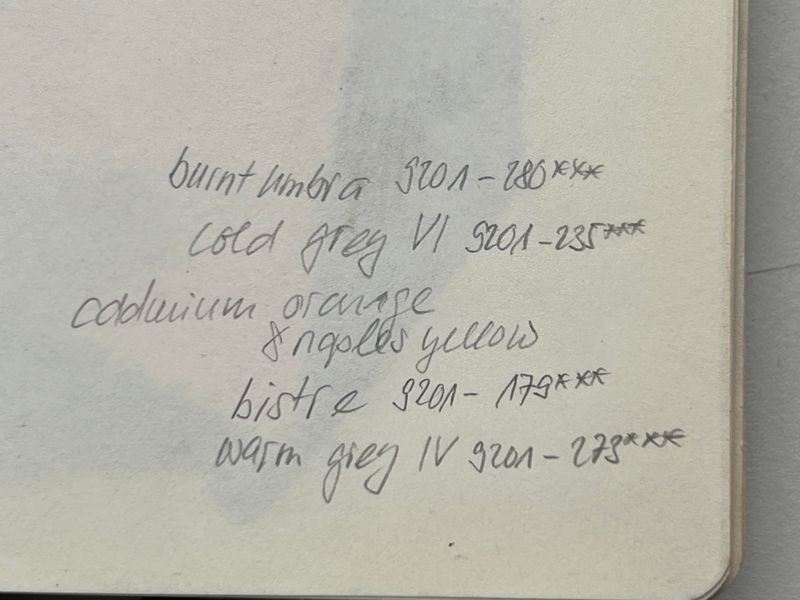 burnt umbra 9201-280***
cold grey VI 9201-235***
cadmium orange
& naples yellow
bistre 9201-179***
warm grey IV 9201-273***